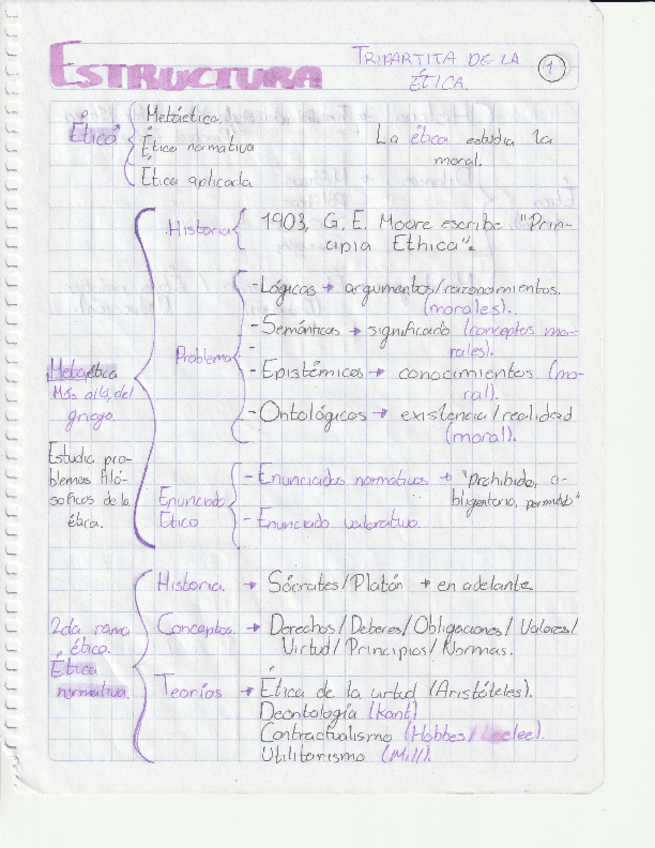 ESTRUCTURA TRIPARTITA DE LA
ÉTICA.
1
Ética
Metaética.
Ética normativa
Ética aplicada
La ética estudia la
moral.
Metaética
Más allá, del
griego.
Estudia pro-
blemas filó-
soficos de la
ética.
Historia
1903, G. E. Moore escribe "Prin-
cipia Ethica".
Problema
-Lógicos → argumentos/razonamientos.
(morales).
-Semánticos → significado (conceptos mo-
rales).
-Epistémicos → conocimientos (mo-
ral).
-Ontológicos → existencia/realidad
(moral).
Enunciado
Ético
-Enunciados normativos → "Prohibido, o-
bligatorio, permitido"
-Enunciado valorativo.
2da rama
ético.
Ética
normativa.
Historia. → Sócrates/Platón → en adelante
Conceptos. → Derechos/Deberes/Obligaciones/Valores/
Virtud/Principios/Normas.
Teorías → Ética de la virtud (Aristóteles).
Deontología (Kant)
Contractualismo (Hobbes/
Utilitarismo (Mill).